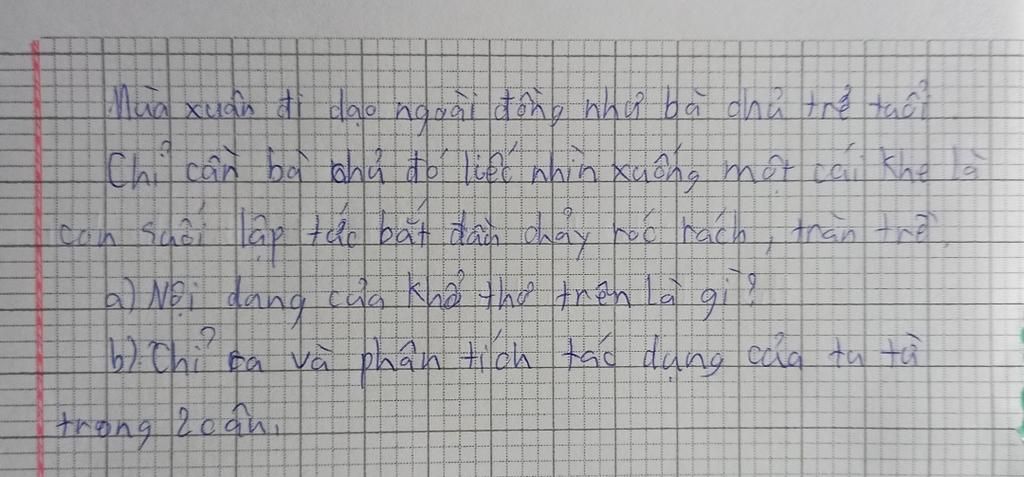 Mùa xuân đi dạo ngoài đồng như bà chủ trẻ tuổi
Chỉ cần bà chủ đó liếc nhìn xuống một cái khe là
con suối lập tức bắt đầu chảy róc rách, tràn trề.
a) Nội dang của khổ thơ trên là gì?
b) Chỉ ra và phân tích tác dụng của tu từ
trong 2 câu.